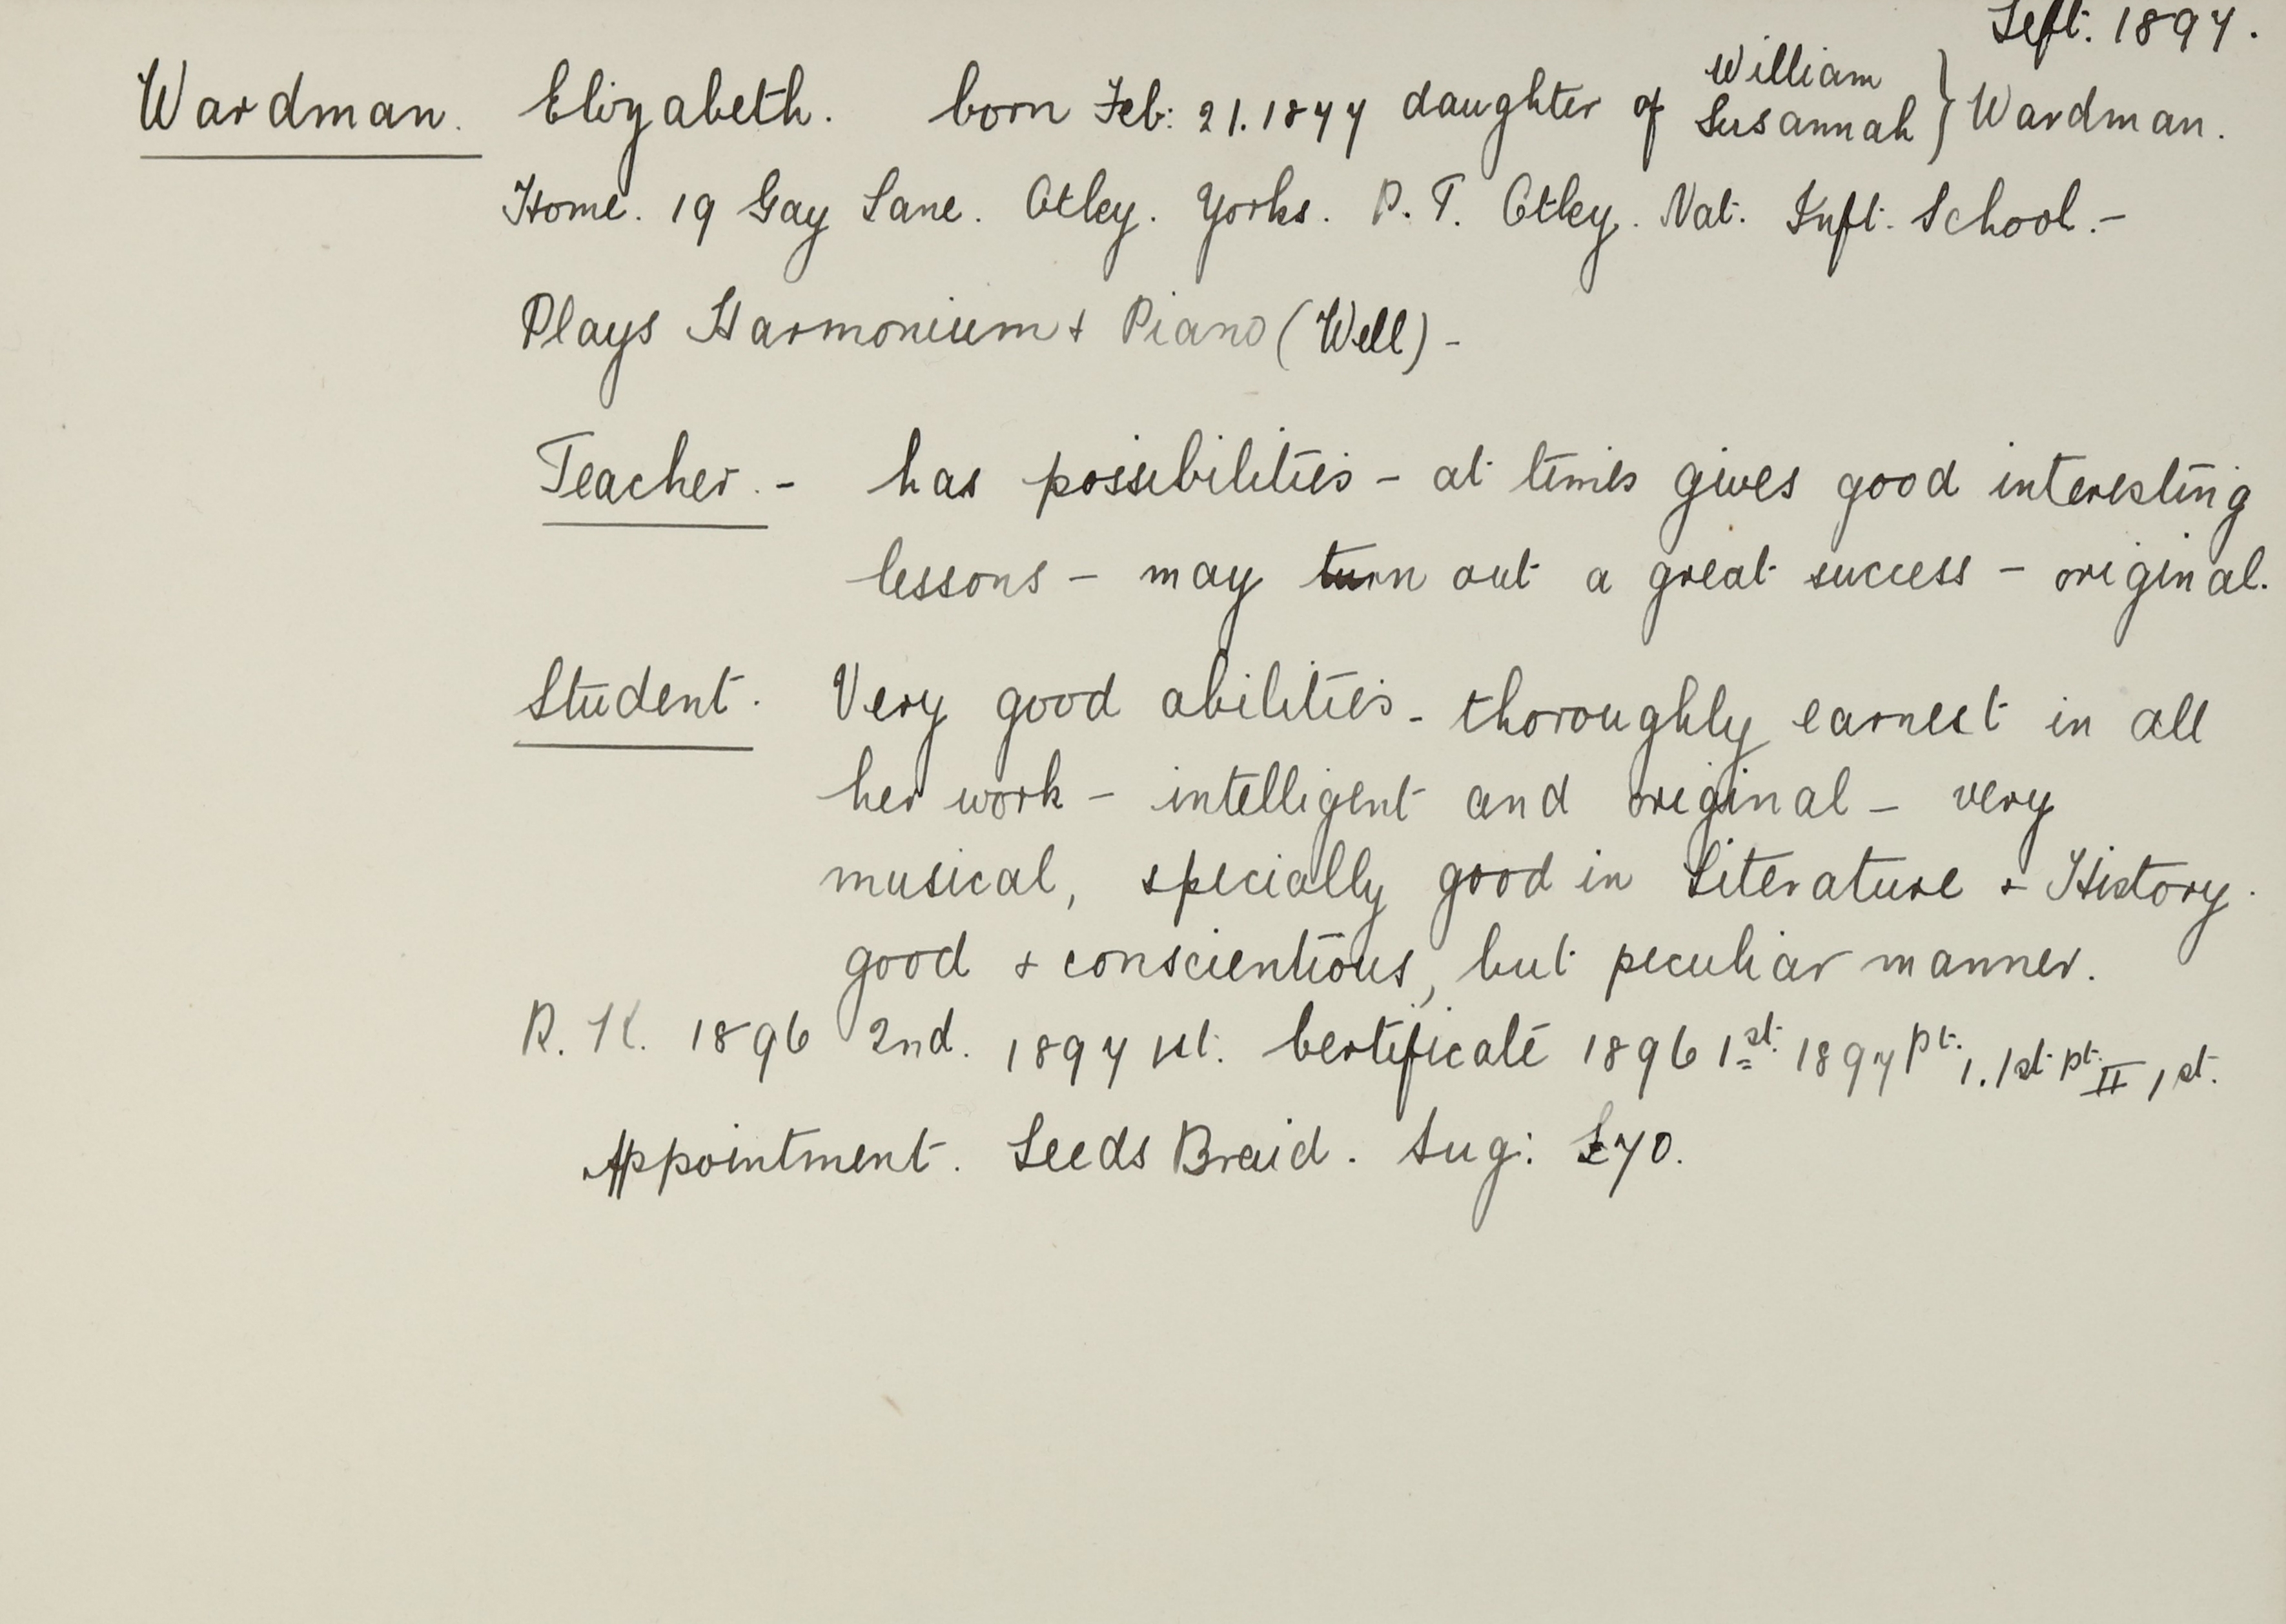 Left. 1897.
Wardman. Elizabeth. born Feb: 21. 1877 daughter of William Susannah } Wardman.
Home. 19 Gay Lane. Otley. Yorks. P. T. Otley. Nat. Inft. School. -
Plays Harmonium & Piano (Well) -
Teacher. - has possibilities - at times gives good interesting
lessons - may turn out a great success - original.
Student. Very good abilities - thoroughly earnest in all
her work - intelligent and original - very
musical, specially good in Literature & History.
good & conscientious, but peculiar manner.
R. K. 1896 2nd. 1897 1st. Certificate 1896 1st. 1897 pt. 1. 1st pt. II 1st.
Appointment. Leeds Braid. Aug: £70.